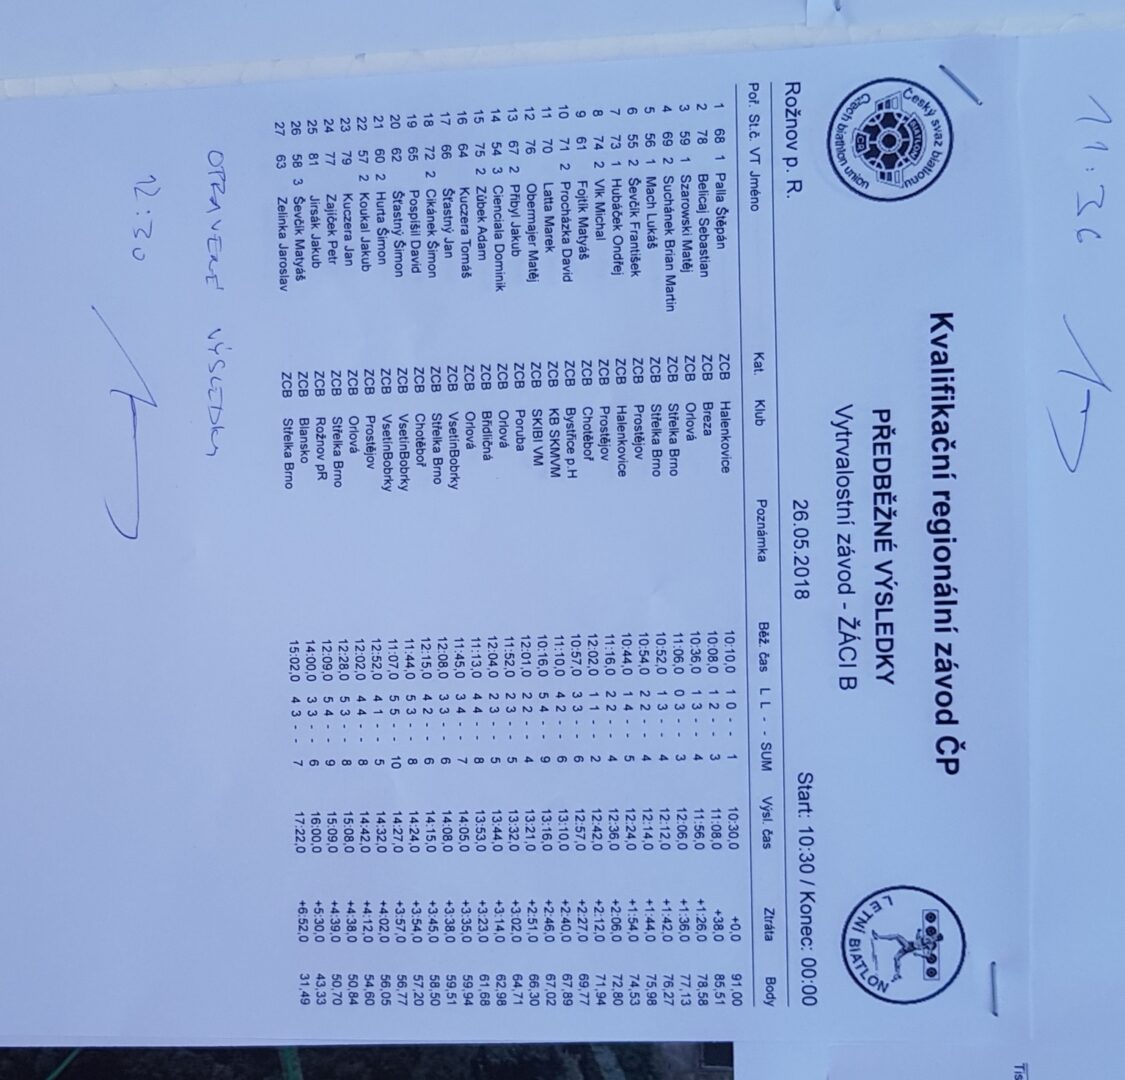 11:36
Český svaz biatlonu
Czech biathlon union
LETNÍ BIATLON
Kvalifikační regionální závod ČP
PŘEDBĚŽNÉ VÝSLEDKY
Vytrvalostní závod - ŽÁCI B
Rožnov p. R. 26.05.2018 Start: 10:30 / Konec: 00:00
Poř. St.č. VT Jméno Kat. Klub Poznámka Běž. čas L L - - SUM Výsl. čas Ztráta Body
1 68 1 Palla Štěpán ZCB Halenkovice 10:10,0 1 0 - - 1 10:30,0 +0,0 91,00
2 78 Belicaj Sebastian ZCB Breza 10:08,0 1 2 - - 3 11:08,0 +38,0 85,51
3 59 1 Szarowski Matěj ZCB Orlová 10:36,0 1 3 - - 4 11:56,0 +1:26,0 78,58
4 69 2 Suchánek Brian Martin ZCB Střelka Brno 11:06,0 0 3 - - 3 12:06,0 +1:36,0 77,13
5 56 1 Mach Lukáš ZCB Střelka Brno 10:52,0 1 3 - - 4 12:12,0 +1:42,0 76,27
6 55 2 Ševčík František ZCB Prostějov 10:54,0 2 2 - - 4 12:14,0 +1:44,0 75,98
7 73 1 Hubáček Ondřej ZCB Halenkovice 10:44,0 1 4 - - 5 12:24,0 +1:54,0 74,53
8 74 2 Vlk Michal ZCB Prostějov 11:16,0 2 2 - - 4 12:36,0 +2:06,0 72,80
9 61 Fojtík Matyáš ZCB Chotěboř 12:02,0 1 1 - - 2 12:42,0 +2:12,0 71,94
10 71 2 Procházka David ZCB Bystřice p.H 10:57,0 3 3 - - 6 12:57,0 +2:27,0 69,77
11 70 Latta Marek ZCB KB SKMVM 11:10,0 4 2 - - 6 13:10,0 +2:40,0 67,89
12 76 Obermajer Matěj ZCB SKIBI VM 10:16,0 5 4 - - 9 13:16,0 +2:46,0 67,02
13 67 2 Přibyl Jakub ZCB Poruba 12:01,0 2 2 - - 4 13:21,0 +2:51,0 66,30
14 54 3 Cienciala Dominik ZCB Orlová 11:52,0 2 3 - - 5 13:32,0 +3:02,0 64,71
15 75 2 Zúbek Adam ZCB Břidličná 12:04,0 2 3 - - 5 13:44,0 +3:14,0 62,98
16 64 Kuczera Tomáš ZCB Orlová 11:13,0 4 4 - - 8 13:53,0 +3:23,0 61,68
17 66 Šťastný Jan ZCB VsetínBobrky 11:45,0 3 4 - - 7 14:05,0 +3:35,0 59,94
18 72 2 Cikánek Šimon ZCB Střelka Brno 12:08,0 3 3 - - 6 14:08,0 +3:38,0 59,51
19 65 Pospíšil David ZCB Chotěboř 12:15,0 4 2 - - 6 14:15,0 +3:45,0 58,50
20 62 Šťastný Šimon ZCB VsetínBobrky 11:44,0 5 3 - - 8 14:24,0 +3:54,0 57,20
21 60 2 Hurta Šimon ZCB VsetínBobrky 11:07,0 5 5 - - 10 14:27,0 +3:57,0 56,77
22 57 2 Koukal Jakub ZCB Prostějov 12:52,0 4 1 - - 5 14:32,0 +4:02,0 56,05
23 79 Kuczera Jan ZCB Orlová 12:02,0 4 4 - - 8 14:42,0 +4:12,0 54,60
24 77 Zajíček Petr ZCB Střelka Brno 12:28,0 5 3 - - 8 15:08,0 +4:38,0 50,84
25 81 Jirsák Jakub ZCB Rožnov pR 12:09,0 5 4 - - 9 15:09,0 +4:39,0 50,70
26 58 3 Ševčík Matyáš ZCB Blansko 14:00,0 3 3 - - 6 16:00,0 +5:30,0 43,33
27 63 Zelinka Jaroslav ZCB Střelka Brno 15:02,0 4 3 - - 7 17:22,0 +6:52,0 31,49
OPRAVENÉ VÝSLEDKY
12:30